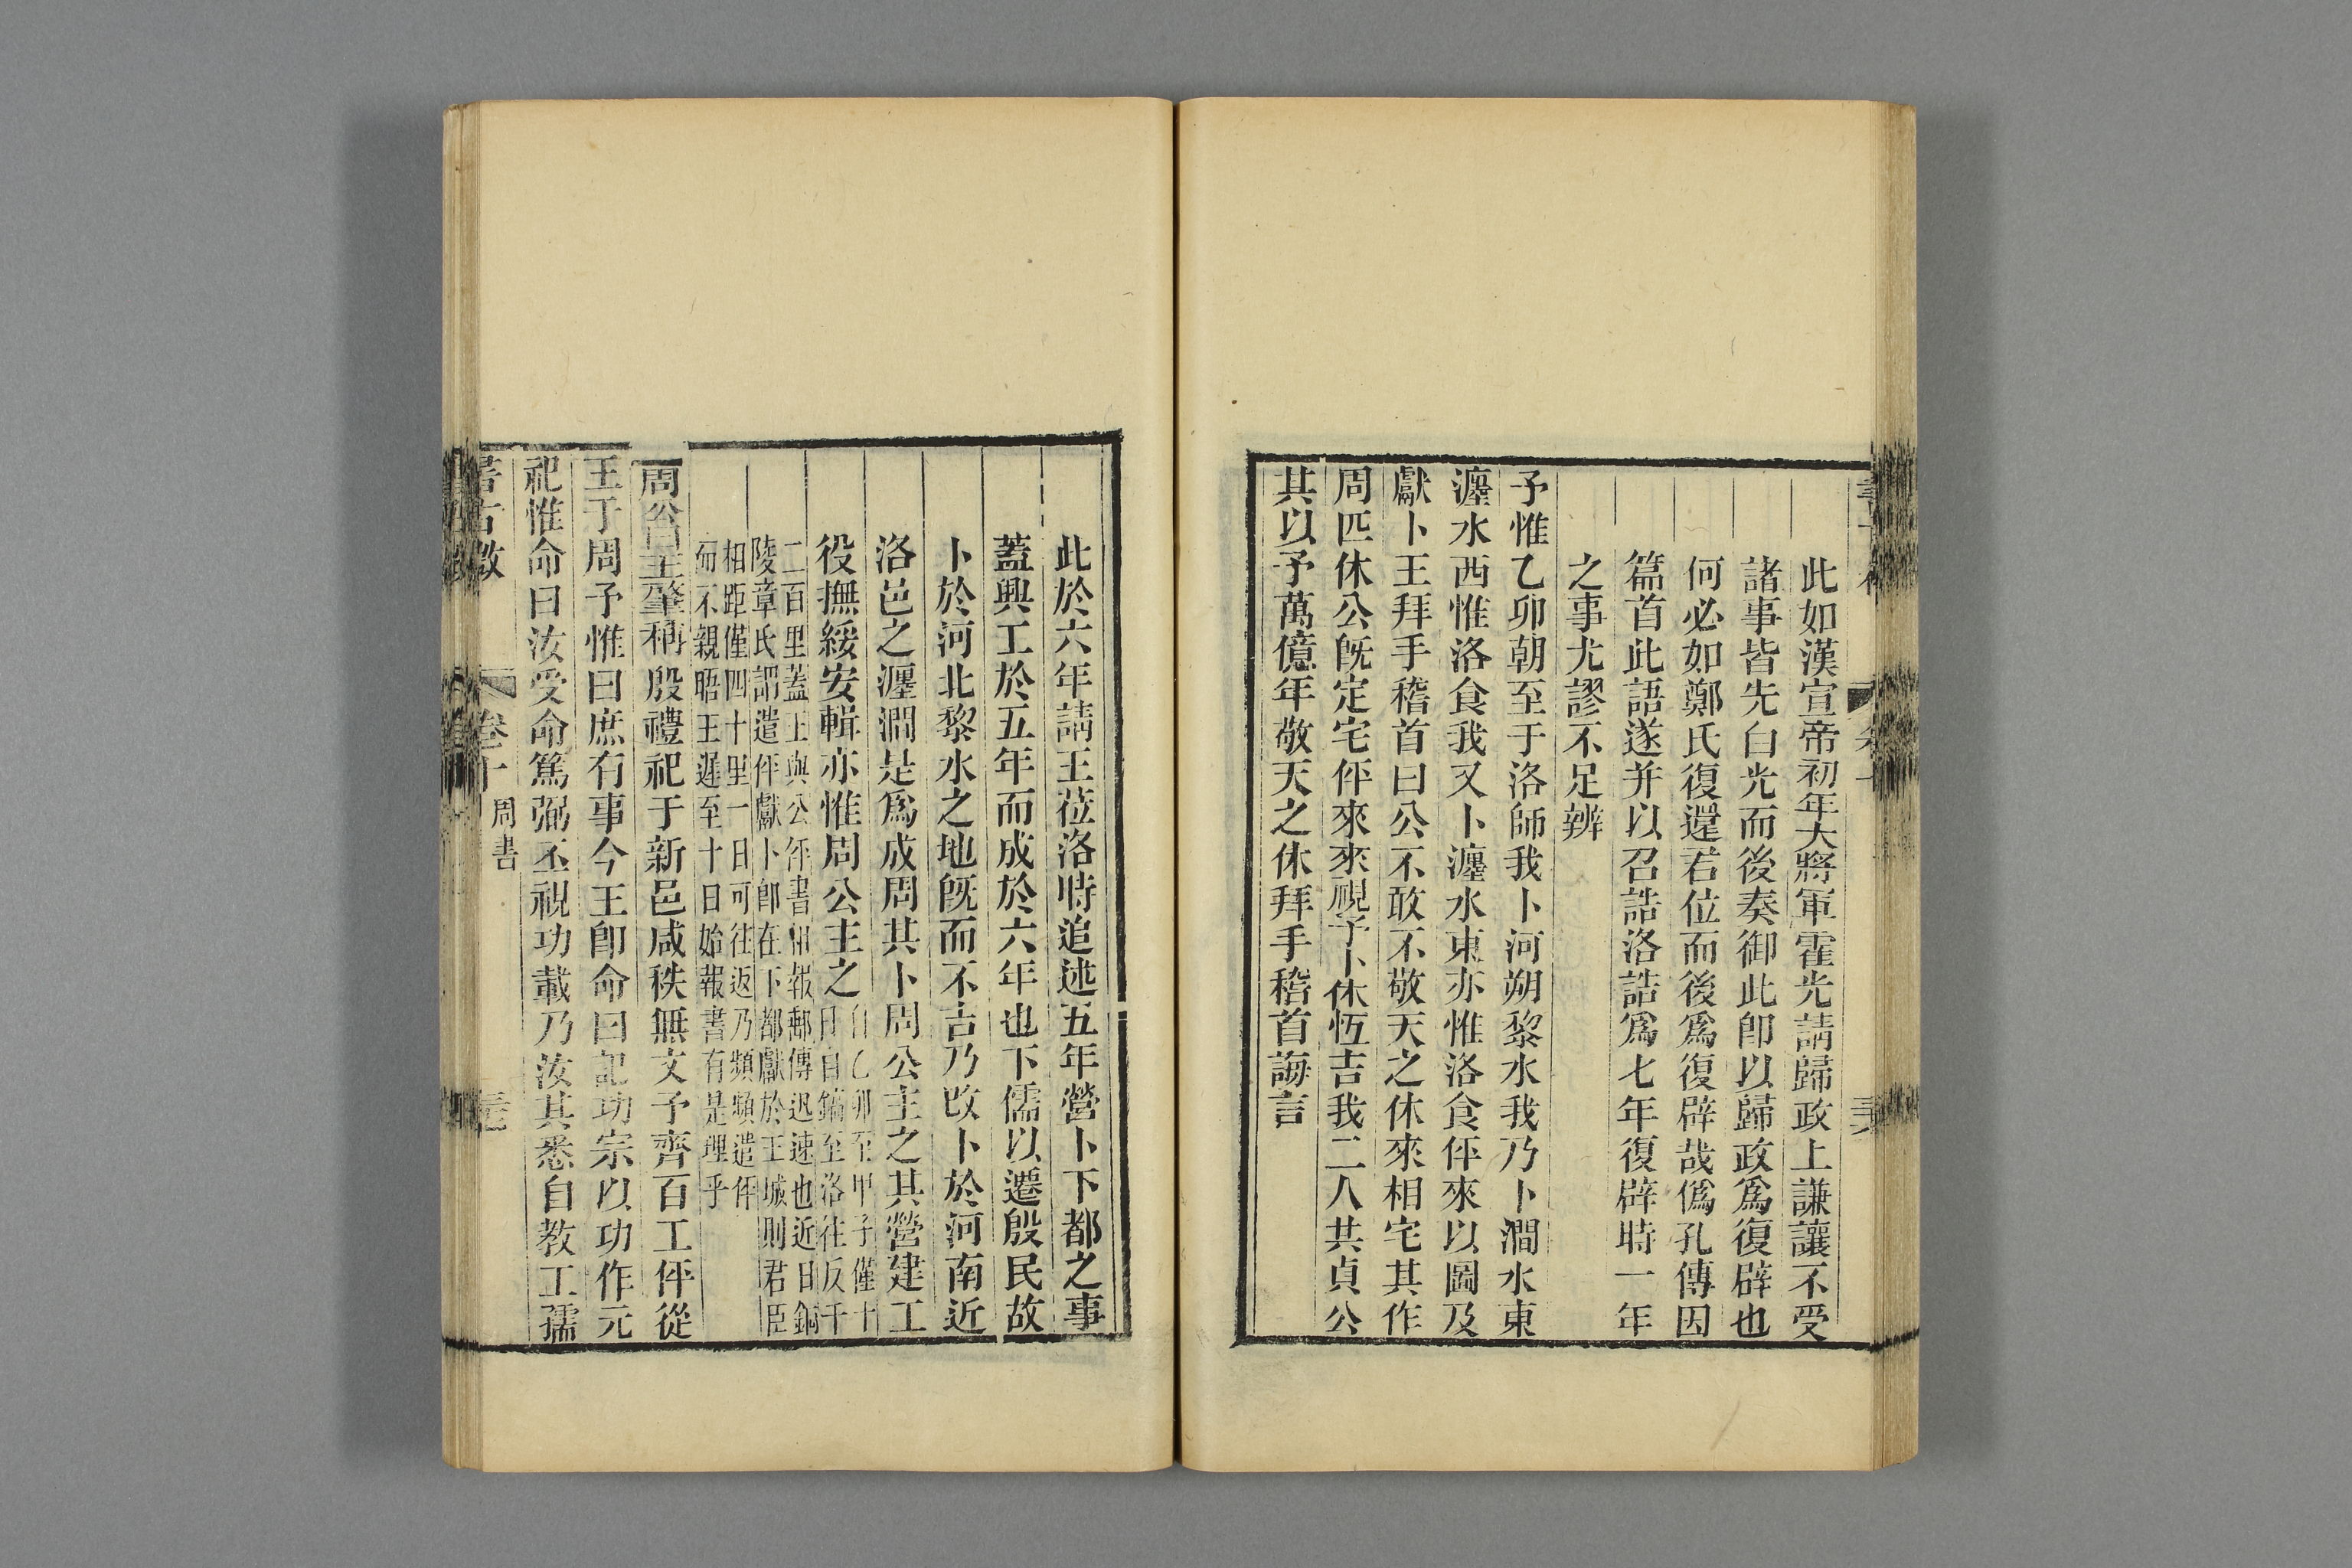 此如漢宣帝初年大將軍霍光請歸政上謙讓不受
諸事皆先白光而後奏御此卽以歸政爲復辟也
何必如鄭氏復還君位而後爲復辟哉僞孔傳因
篇首此語遂并以召誥洛誥爲七年復辟時一年
之事尤謬不足辨
予惟乙卯朝至于洛師我卜河朔黎水我乃卜澗水東
瀍水西惟洛食我又卜瀍水東亦惟洛食伻來以圖及
獻卜王拜手稽首曰公不敢不敬天之休來相宅其作
周匹休公旣定宅伻來來視予卜休恆吉我二人共貞公
其以予萬億年敬天之休拜手稽首誨言
此於六年請王莅洛時追述五年營卜下都之事
蓋興工於五年而成於六年也下儒以遷殷民故
卜於河北黎水之地旣而不吉乃改卜於河南近
洛邑之瀍澗是爲成周其卜周公主之其營建工
役撫綏安輯亦惟周公主之
自乙卯至甲子僅十
日自鎬至洛往反千
二百里蓋王與公年書相報郵傳迅速也近日銅
陵章氏謂遣伻獻卜卽在下都獻於王城則君臣
相距僅四十里一日可往返乃頻頻遣伻
而不親晤王遲至十日始報書有是理乎
周公曰王肇稱殷禮祀于新邑咸秩無文予齊百工伻從
王于周予惟曰庶有事今王卽命曰記功宗以功作元
祀惟命曰汝受命篤弼丕視功載乃汝其悉自教工孺
書古微
卷十
周書